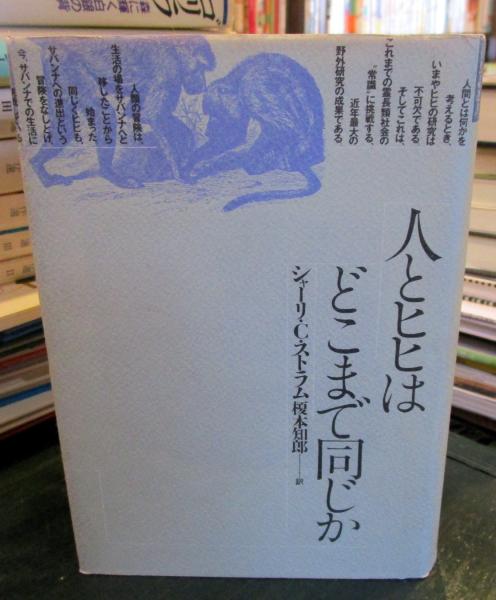 人間とは何かを
考えるとき、
いまやヒヒの研究は
不可欠である。
そしてこれは、
これまでの霊長類社会の
"常識"に挑戦する、
近年最大の
野外研究の成果である。
人類の冒険は、
生活の場をサバンナへと
移したことから
始まった。
同じくヒヒも、
サバンナへの進出という
冒険をなしとげ、
今、サバンナでの生活に
人とヒヒは
どこまで同じか
シャーリ・C・ストラム
榎本知郎――訳
森に輝く白銀の背